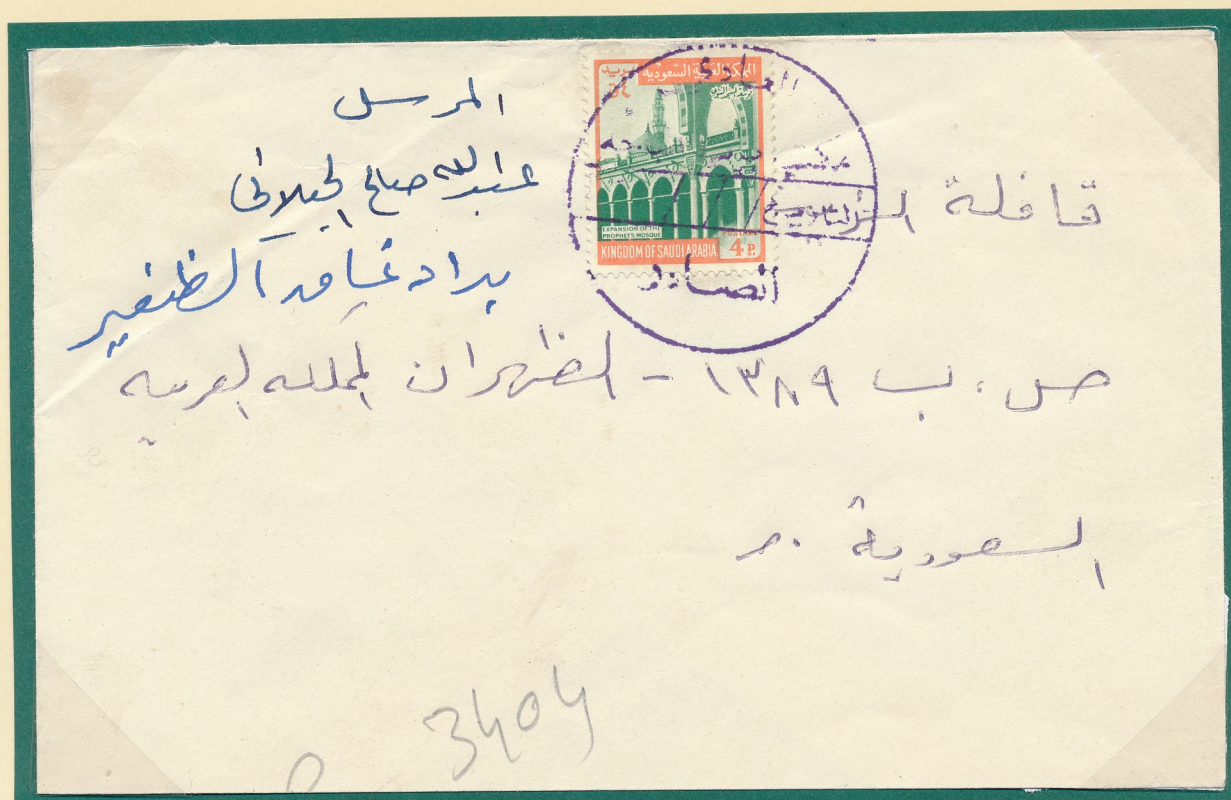 المرسل
عبدالله صالح الجيلاني
الظفير
المملكة العربية السعودية
بريد
٤
EXPANSION OF THE
PROPHET'S MOSQUE
POSTAGE
KINGDOM OF SAUDI ARABIA 4 P.
الصادر
قافلة الزيت
ص.ب ١٣٨٩ - الظهران المملكة العربية
السعودية
3404